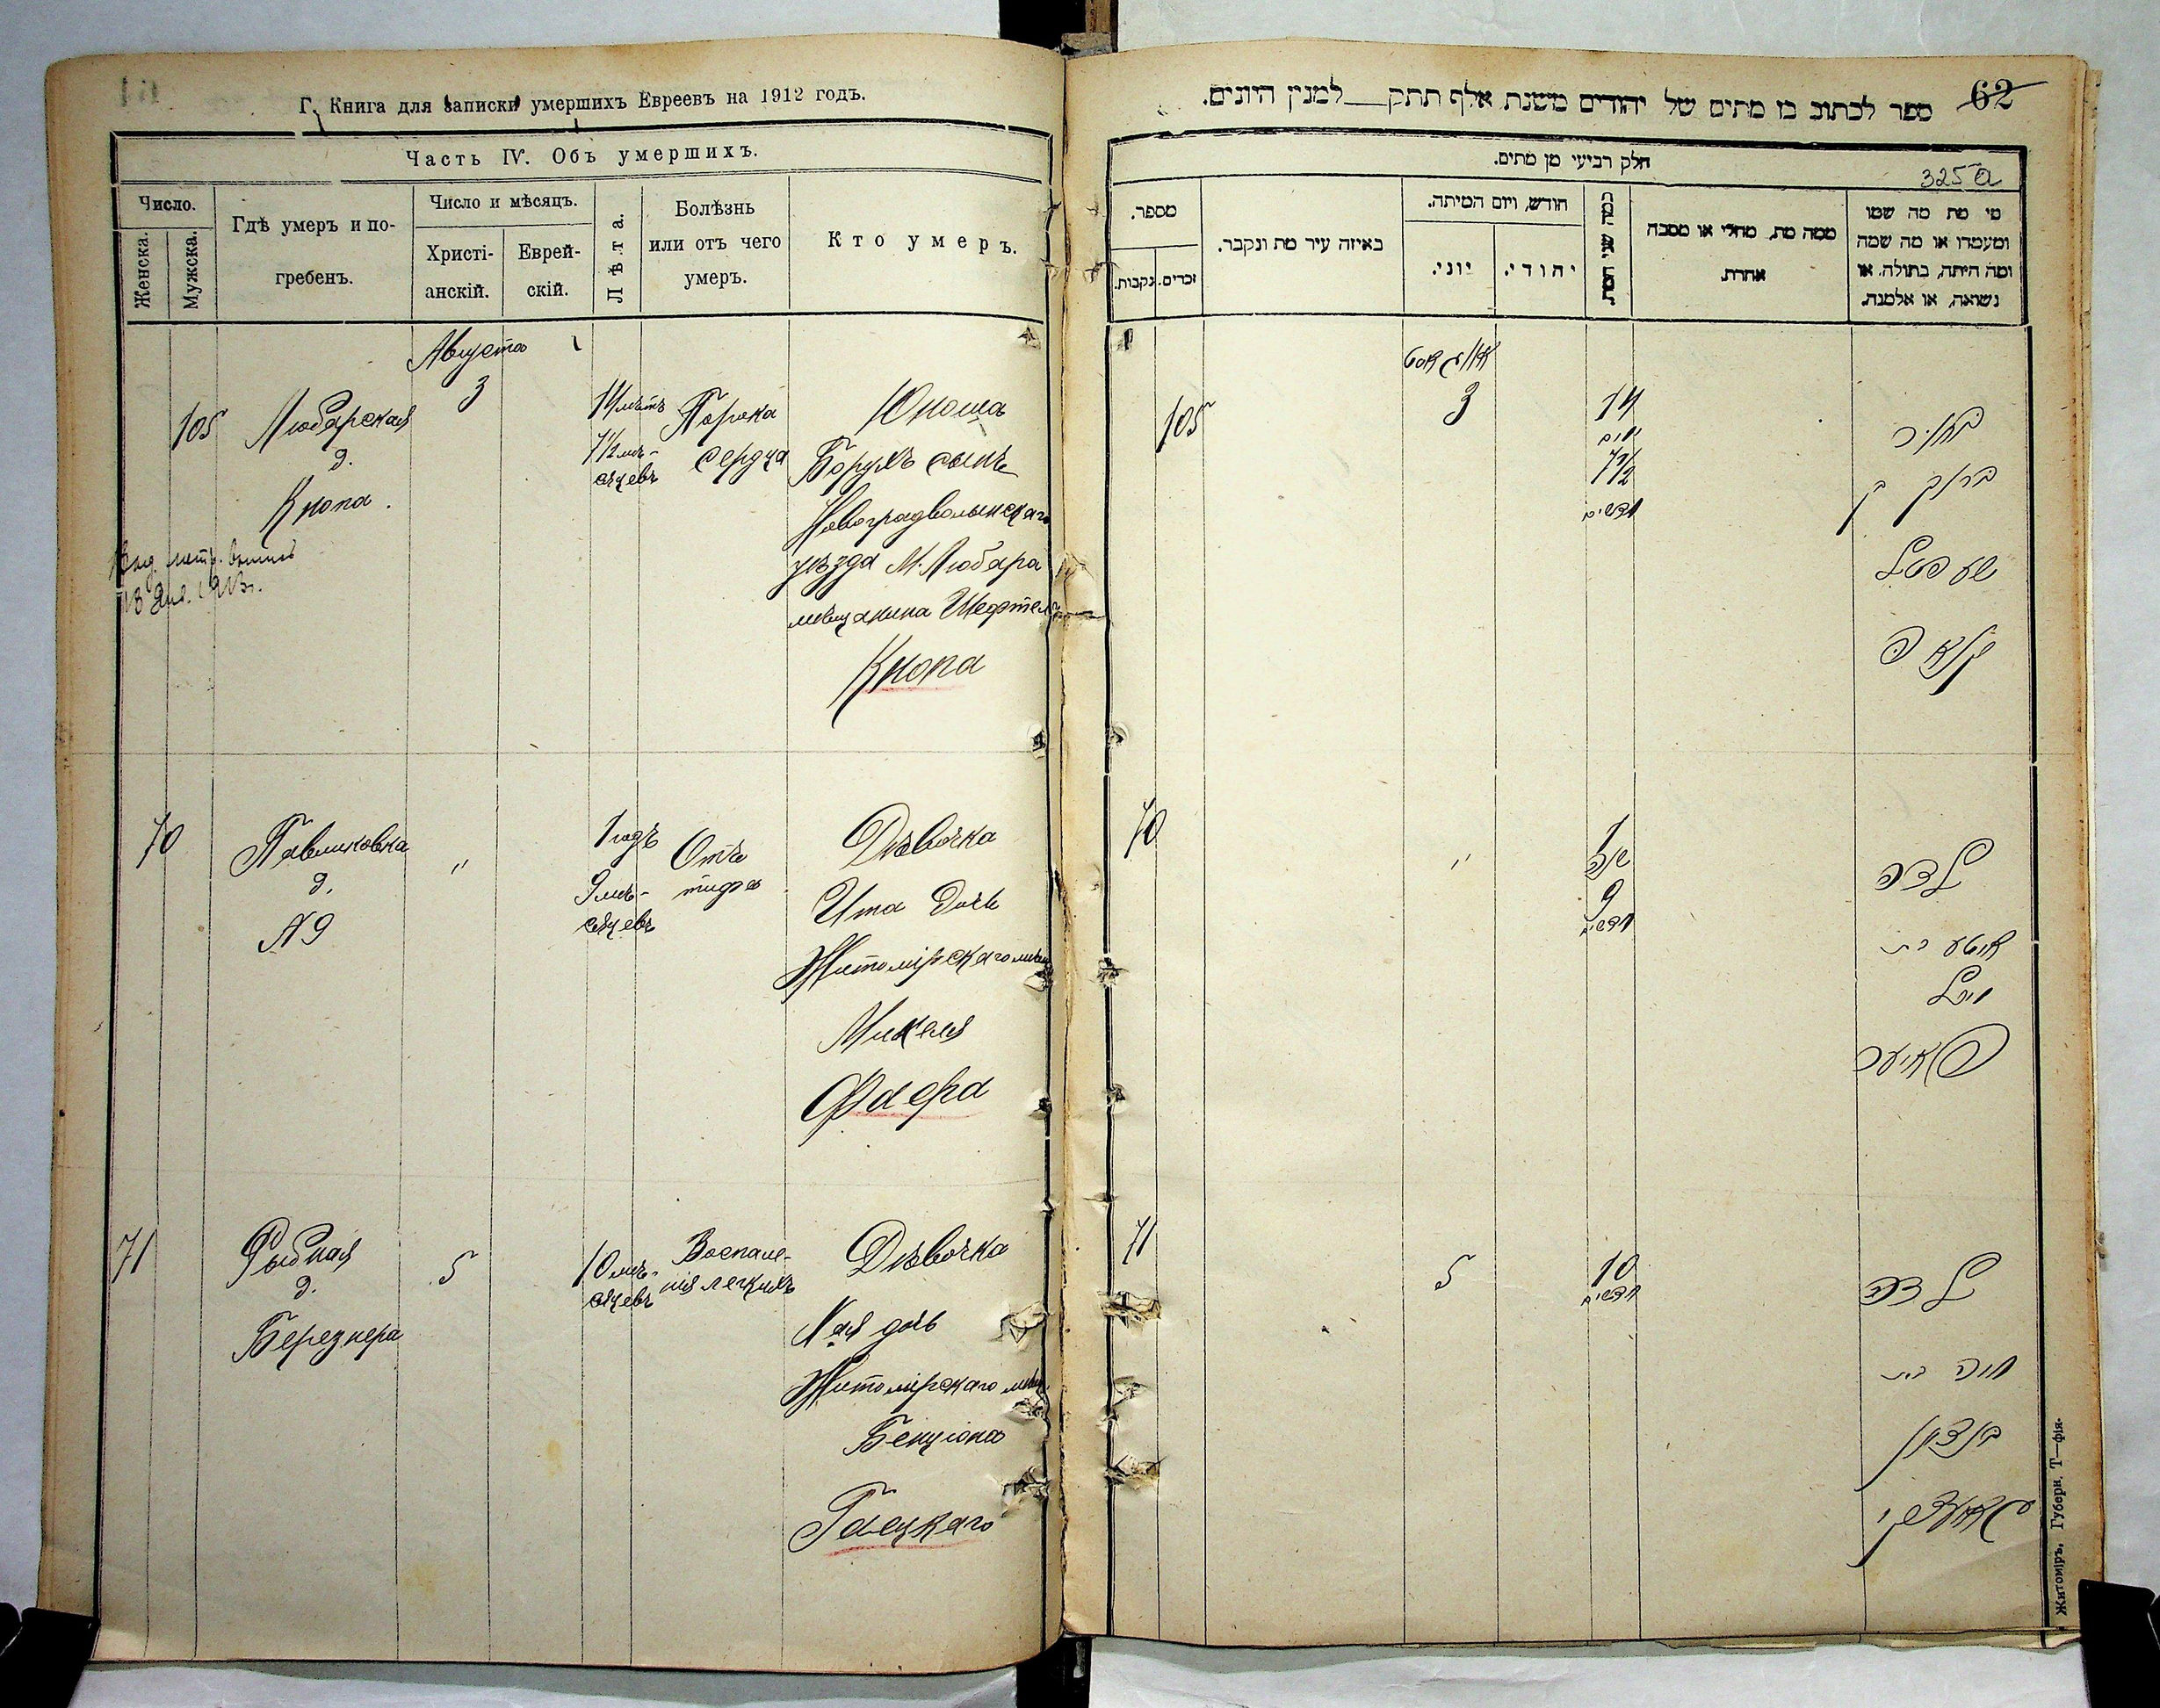 Г. Книга для записки умершихъ Евреевъ на 1912 годъ.
Часть IV. Объ умершихъ.
Число.
Женска.
Мужска.
Гдѣ умеръ и по-
гребенъ.
Число и мѣсяцъ.
Христі-
анскій.
Еврей-
скій.
Лѣта.
Болѣзнь
или отъ чего
умеръ.
Кто умеръ.
Августа
105
Любарская
д.
Кнопа.
3
14 лѣтъ
7 1/2 мѣ-
сяцевъ
Порока
сердца
Юноша
Борухъ сынъ
Новоградволынскаго
уѣзда М. Любара
мѣщанина Шефтеля
Кнопа
13 Янв. 1913г.
70
Павликовка
д.
№ 9
"
1 годъ
9 мѣ-
сяцевъ
Отъ
тифа
Дѣвочка
Ита дочь
Житомірскаго мѣщ
Михеля
Фаера
71
Рыбная
д.
Березнера
5
10 мѣ-
сяцевъ
Воспале-
нія легкихъ
Дѣвочка
Хая дочь
Житомірскаго мѣщ.
Бенціона
Гаецкаго
62
ספר לכתוב בו מתים של יהודים משנת אלף תתק__למנין היונים.
חלק רביעי מן מתים.
325 а
מספר.
זכרים.
נקבות.
באיזה עיר מת ונקבר.
חודש, ויום המיתה.
יוני.
יהודי.
כמה שני המת.
ממה מת, מחלי או מסבה
אחרת.
מי מת מה שמו
ומעמדו או מה שמה
ומה היתה, בתולה, או
נשואה, או אלמנה.
אויגוסט
105
3
14
7 1/2
חדשים
בחור
ברוך בן
שעפטל
קנאפ
70
"
1
שנה
9
חדשים
ילדה
איטא בת
מיכל
פאיער
71
5
10
חדשים
ילדה
חיה בת
בנציון
גאיעצקי
Житоміръ, Губерн. Т—фія.